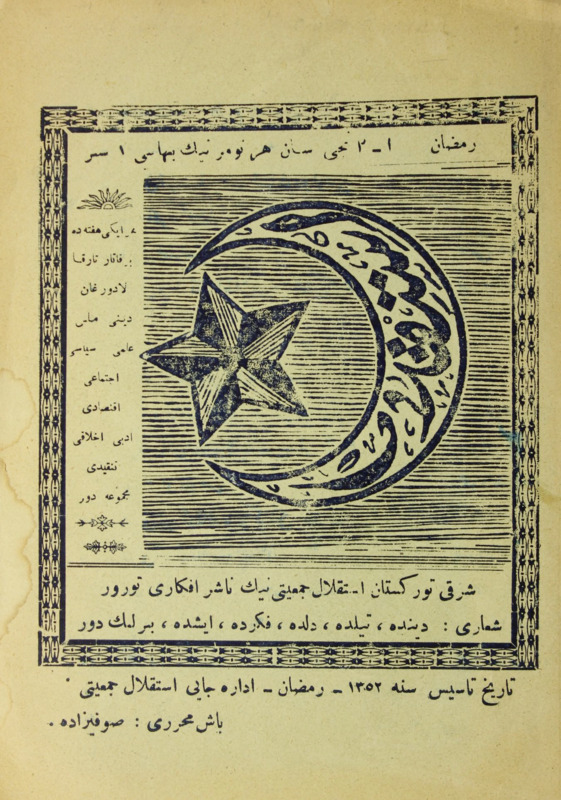 رمضان ١ ـ ٢ نجى سان هر نومر نيك بهاسى ١ سر
هر ايكى هفته ده
بر قاتار تارقا
لادورغان
دينى ملى
علمى سياسى
اجتماعى
اقتصادى
ادبى اخلاقى
تنقيدى
مجموعه دور
شرقى توركستان استقلال جمعيتى نيك ناشر افكارى تورور
شعارى : دينده ، تيلده ، دلده ، فكرده ، ايشده ، برلك دور
تاريخ تاسيس سنه ١٣٥٢ ـ رمضان ـ اداره جايى استقلال جمعيتى .
باش محررى : صوفيزاده .